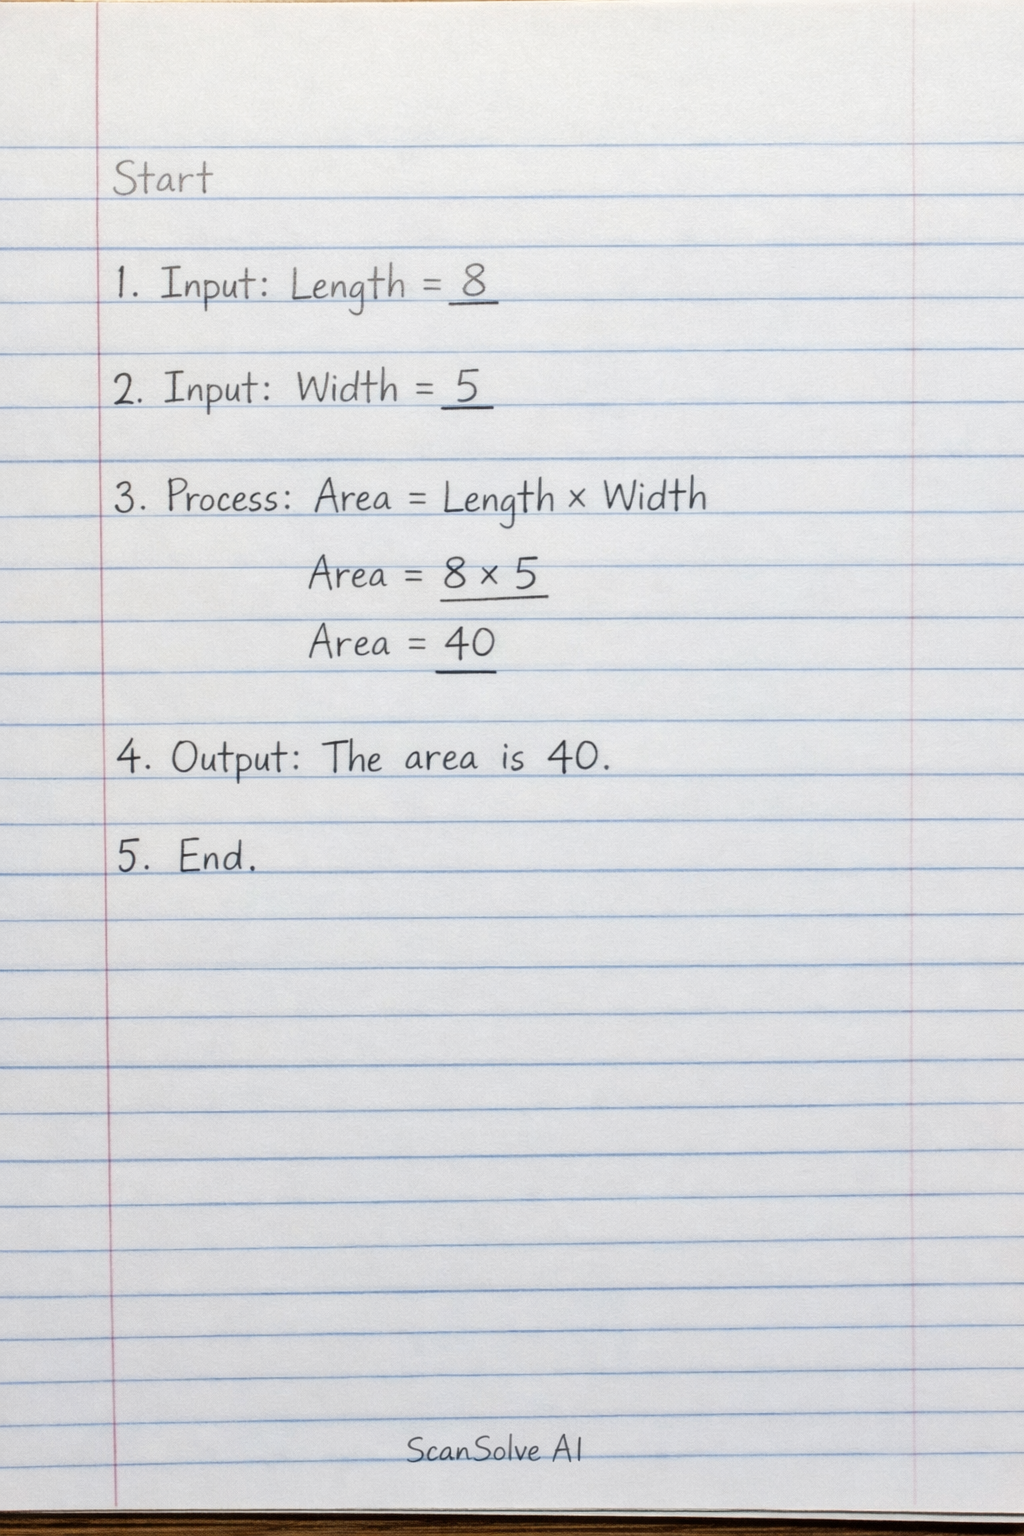 Start
1. Input: Length = 8
2. Input: Width = 5
3. Process: Area = Length × Width
Area = 8 × 5
Area = 40
4. Output: The area is 40.
5. End.
ScanSolve AI